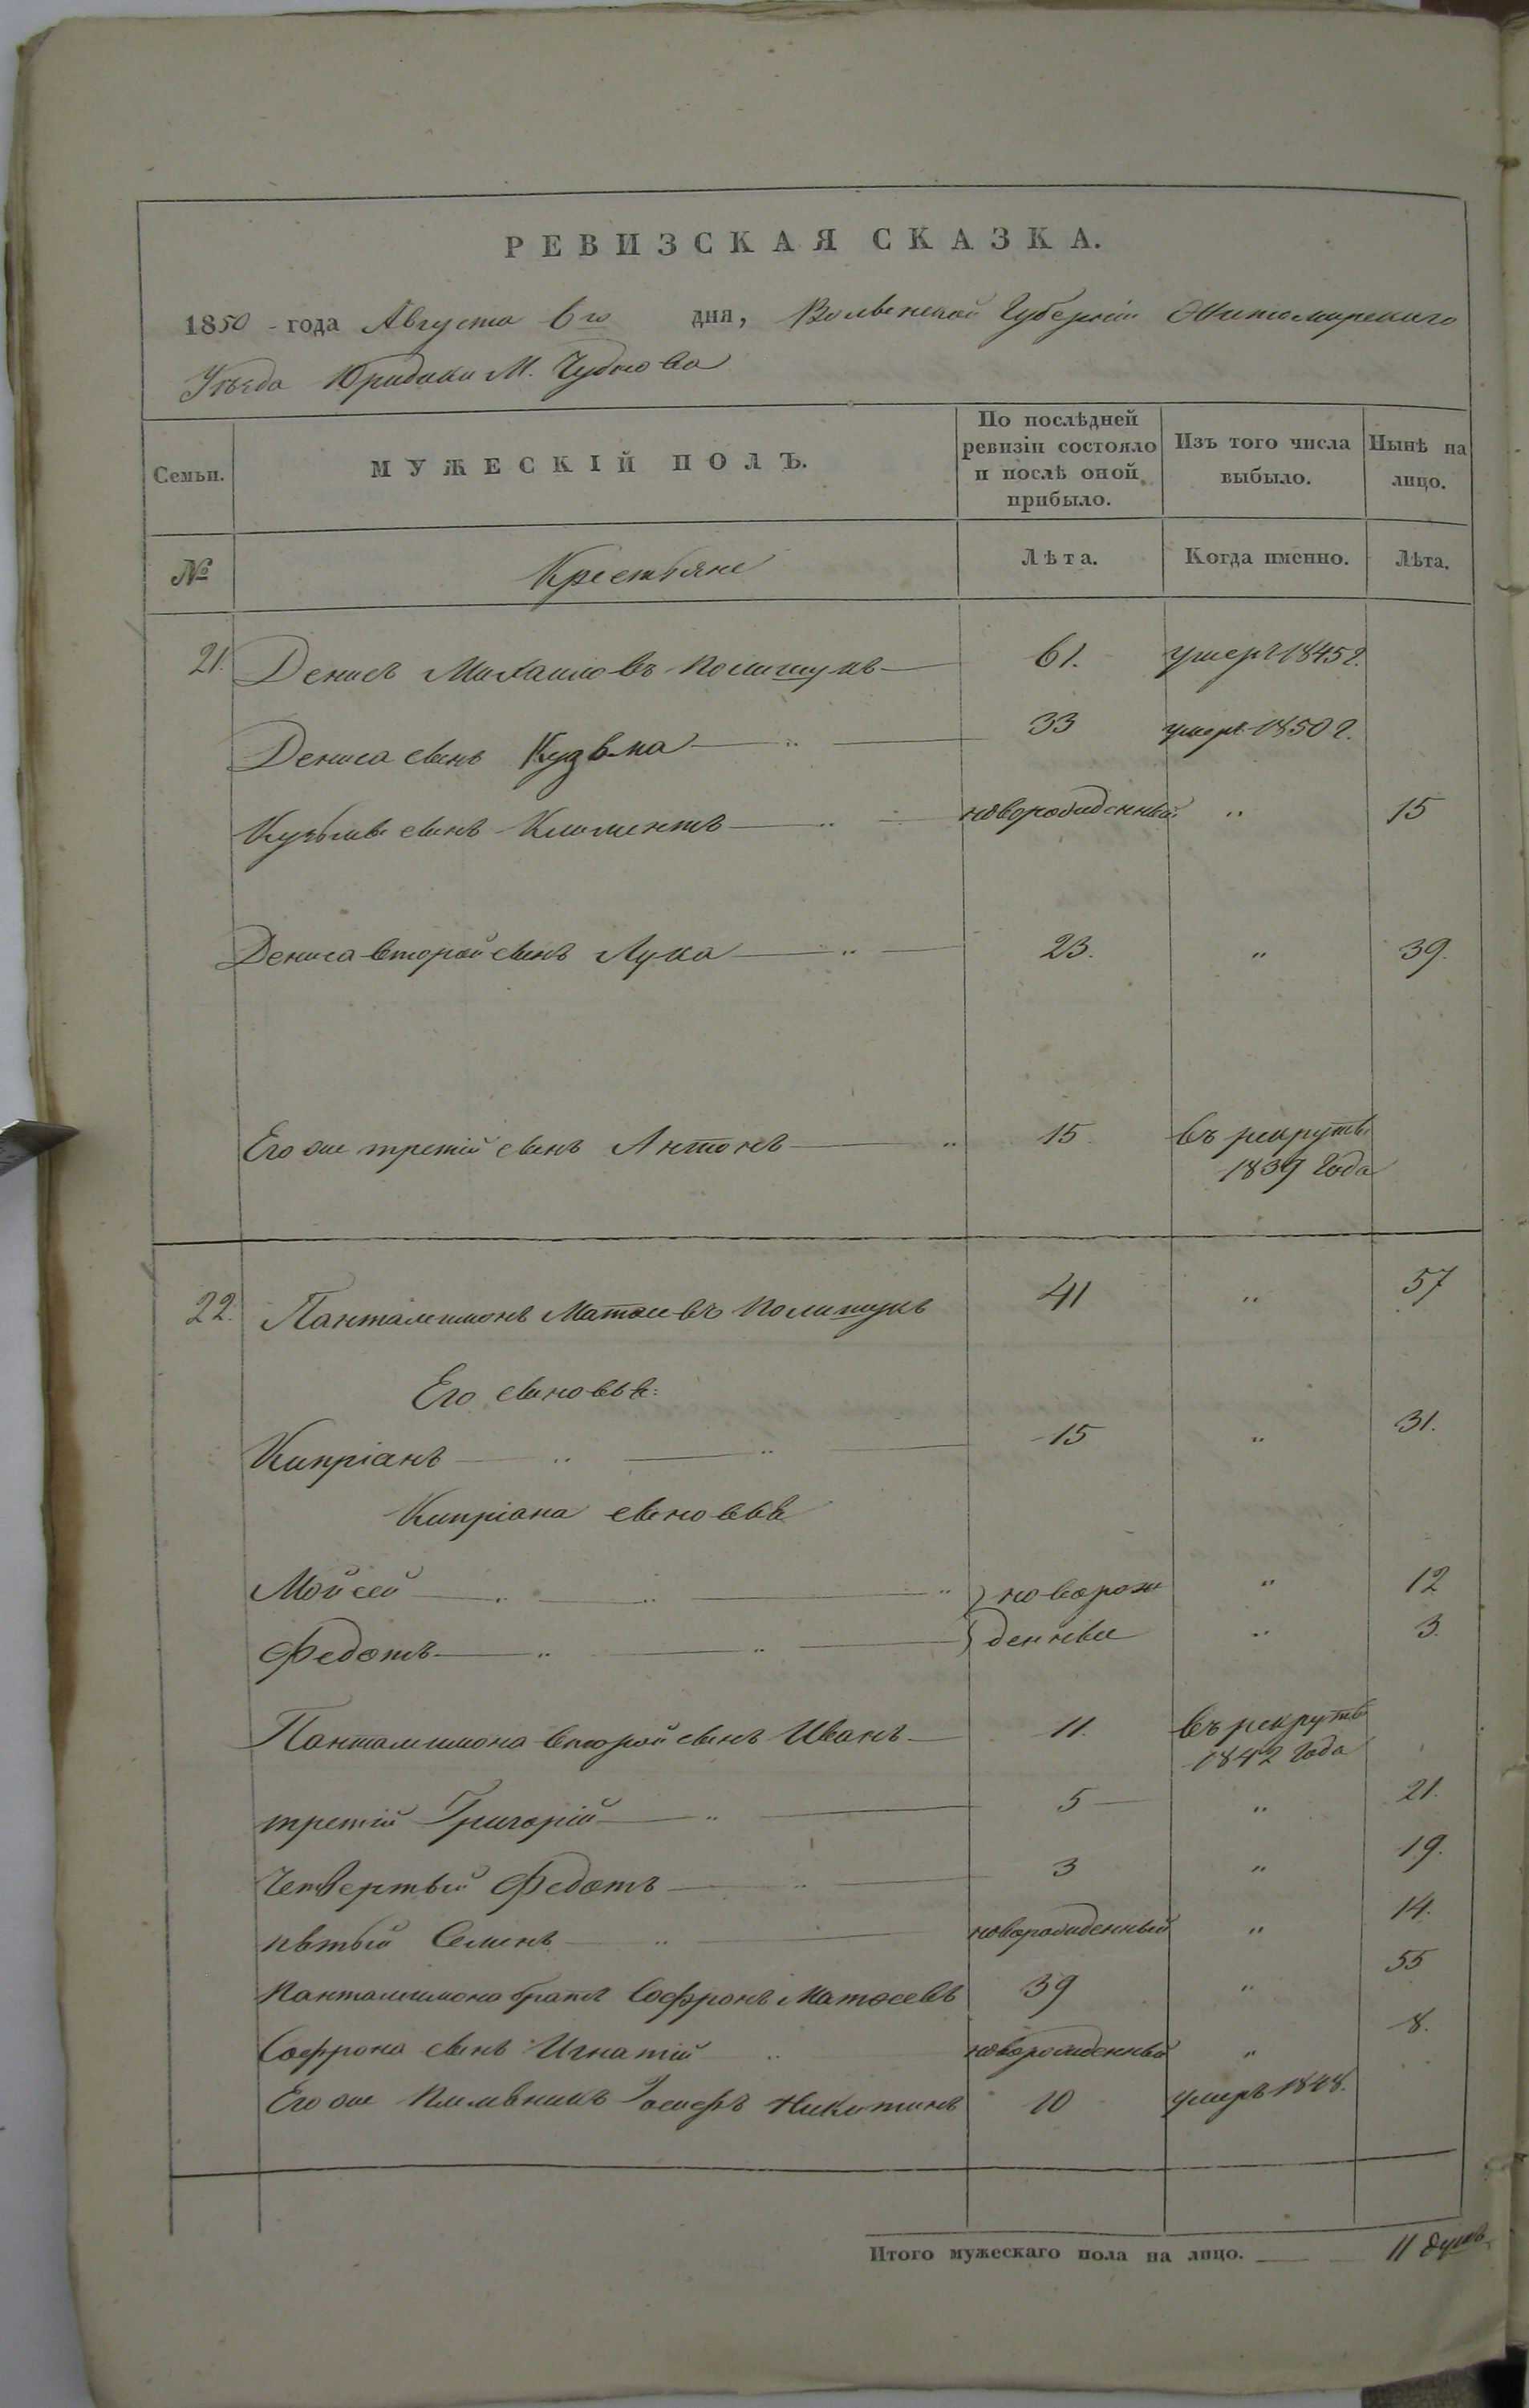 РЕВИЗСКАЯ СКАЗКА.
1850 - года Августа 6го дня, Волынской Губерніи Житомирскаго
Уѣзда Юридики М. Чуднова
Семьи. МУЖЕСКІЙ ПОЛЪ. По послѣдней ревизіи состояло и послѣ оной прибыло. Изъ того числа выбыло. Нынѣ на лицо.
№ Крестьяне Лѣта. Когда именно. Лѣта.
21. Денисъ Михаиловъ Полищукъ 61. умеръ 1845 г.
Дениса сынъ Кузьма " 33 умеръ 1850 г.
Кузьмы сынъ Климентъ " новорожденный " 15
Дениса второй сынъ Лука " 23. " 39.
Его же третій сынъ Антонъ " 15 въ рекруты
1839 года
22. Панталимонъ Матѳеевъ Полищукъ 41 " 57
Его сыновья:
Кипріанъ " " 15 " 31.
Кипріана сыновья
Мойсей " " " } новорож " 12
Федотъ " " } денные " 3.
Панталимона второй сынъ Иванъ 11. въ рекруты
1842 года
третій Григорій " 5 " 21.
Четвертый Федотъ " 3 " 19.
пятый Семенъ " новорожденный " 14.
Панталимона братъ Софронъ Матѳеевъ 39 " 55
Софрона сынъ Игнатій " новорожденный " 8.
Его же племянникъ Іосифъ Никитинъ 10 умеръ 1848.
Итого мужескаго пола на лицо. 11 душъ